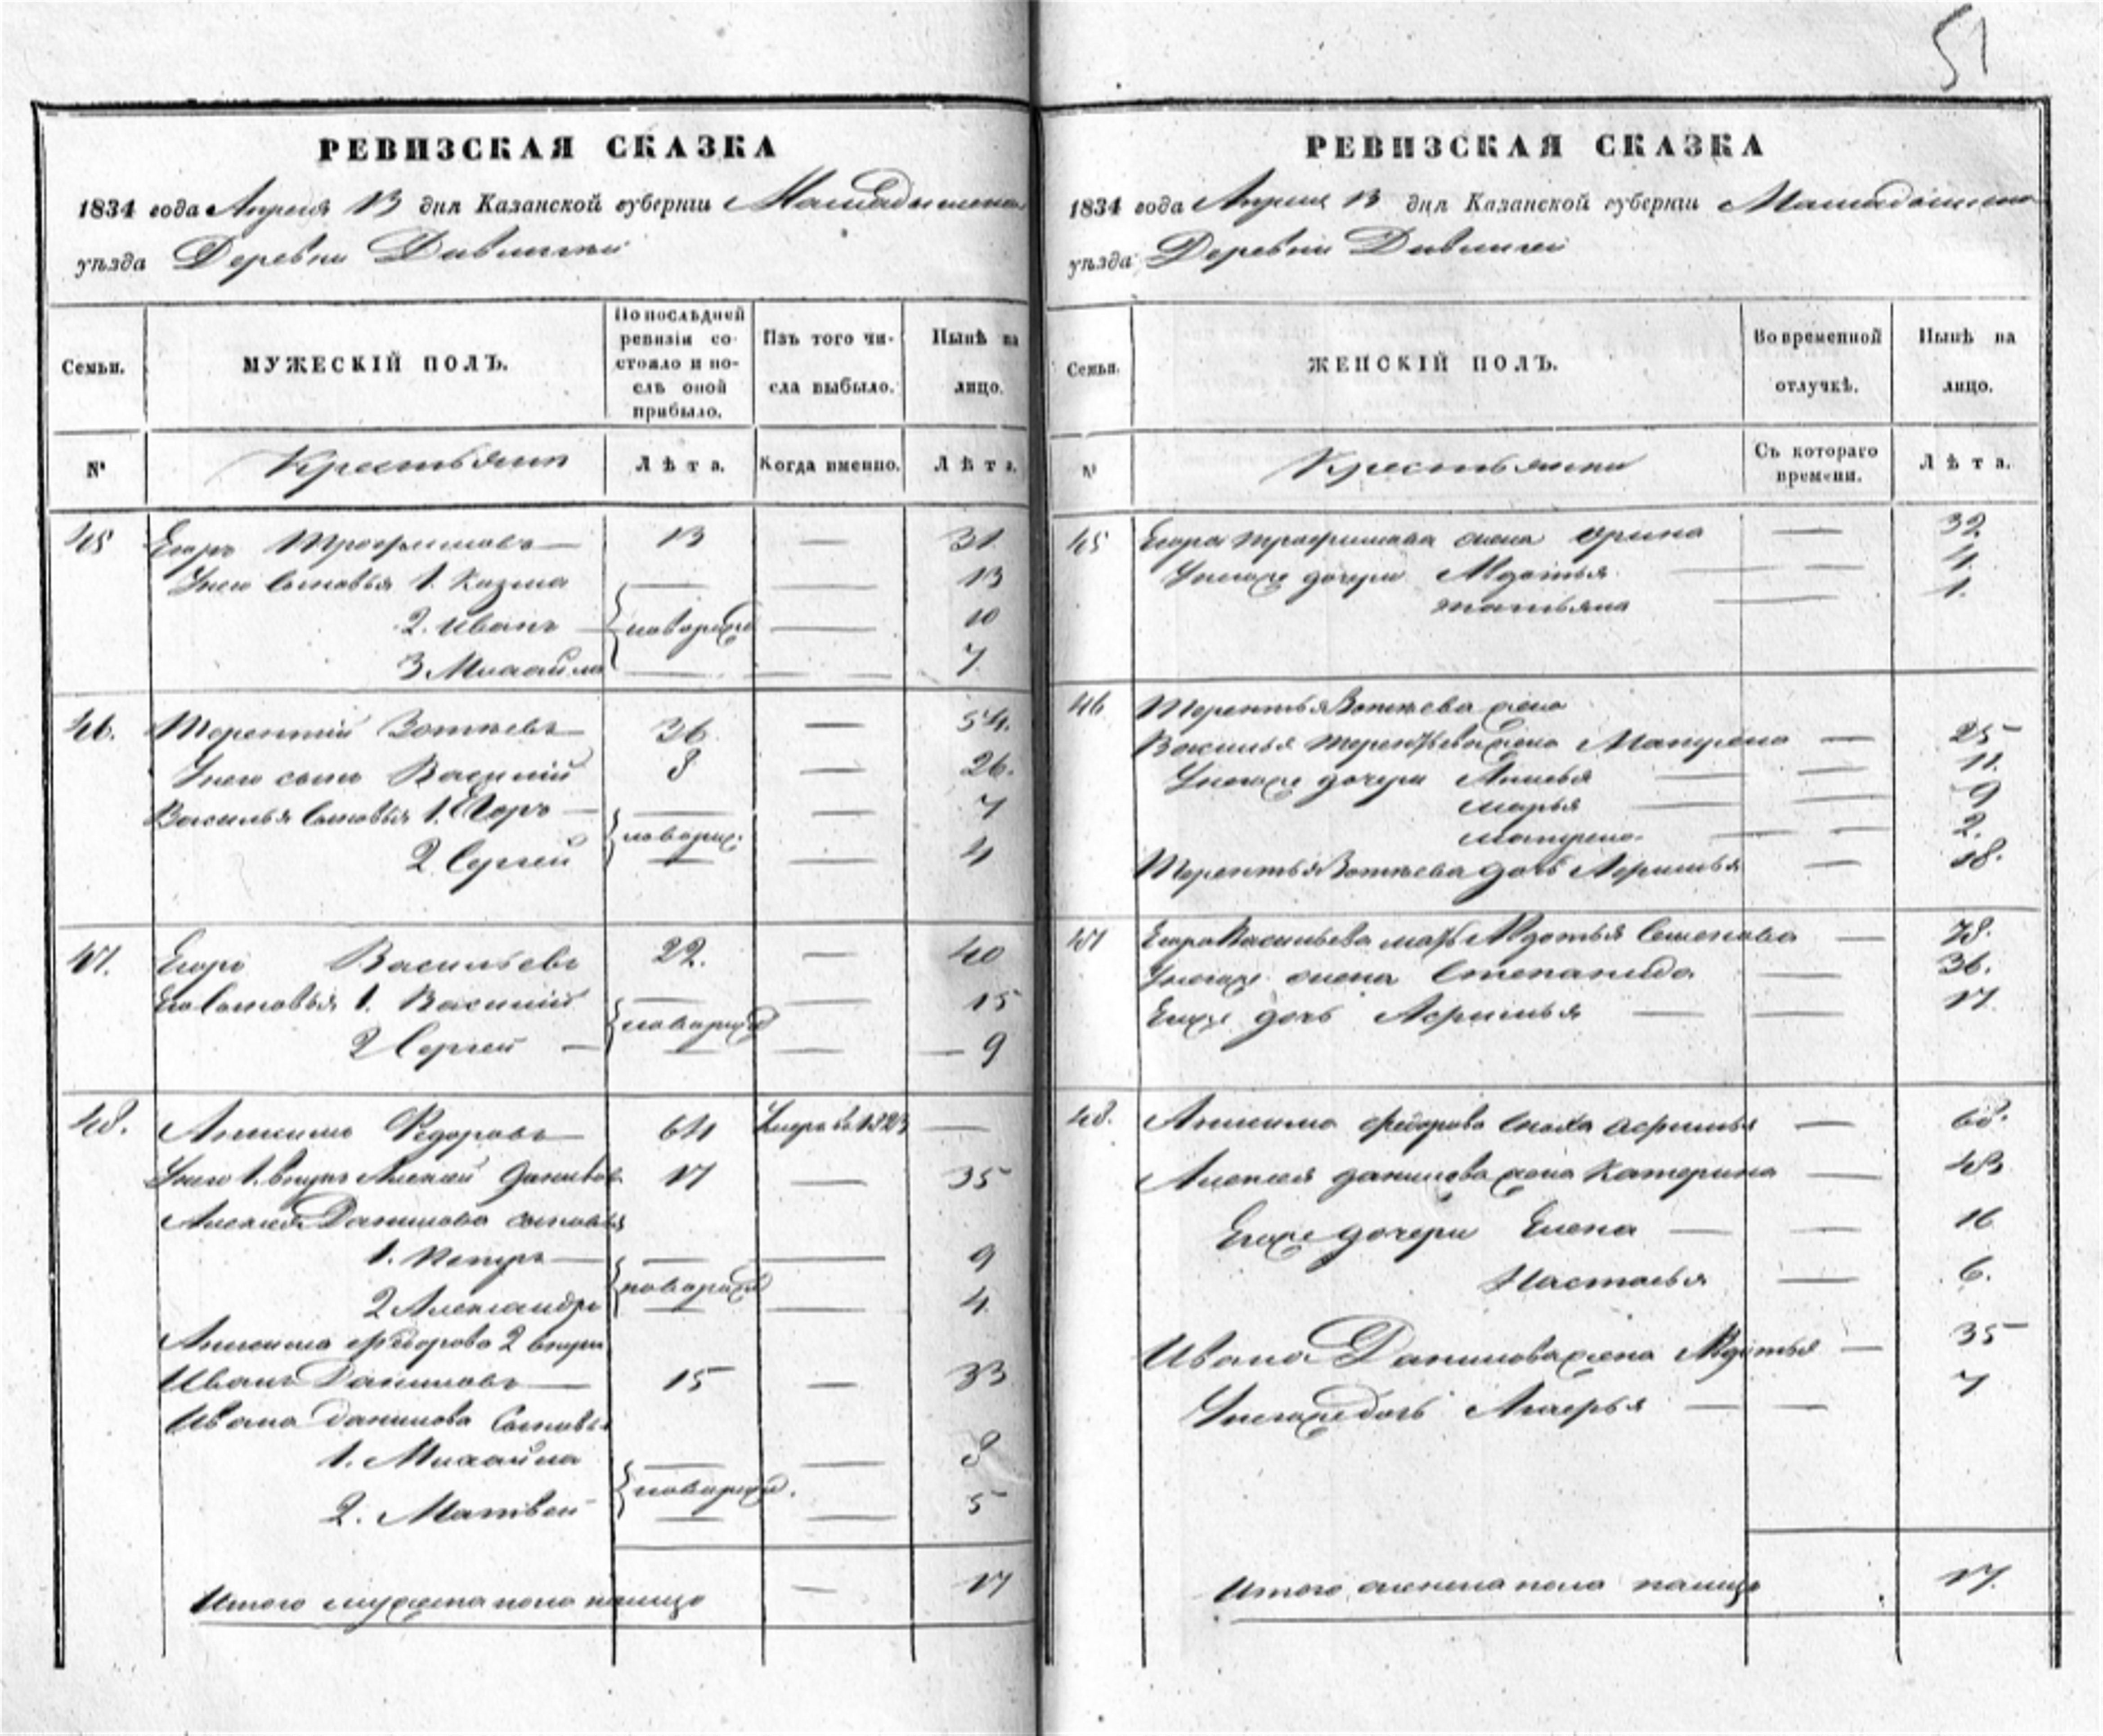 51
РЕВИЗСКАЯ СКАЗКА
1834 года Апреля 13 дня Казанской губернии Мамадышскаго
уѣзда Деревни
Семьи. МУЖЕСКІЙ ПОЛЪ. По послѣдней ревизіи состояло и послѣ оной прибыло. Изъ того числа выбыло. Нынѣ на лицо.
№ Крестьяне Лѣта. Когда именно. Лѣта.
45 Егоръ Трофимовъ — 13 — 31
У него сыновья 1. Козма — — 13
2. Иванъ — новорожд — 10
3 Михайла — — 7
46. Терентій Зотѣевъ — 36 — 54.
У него сынъ Василій 8 — 26.
Василья сыновья 1. Егоръ — — — 7
2 Сергей новорож. — — 4
47. Егоръ Васильевъ 22. — 40
Его сыновья 1. Василій — — 15
2 Сергей — новорожд — — — 9
48. Анисимъ Федоровъ — 64 Умеръ въ 1823 —
У него 1. внукъ Алексей Даниловъ 17 — 35
Алексея Данилова сыновья
1. Петръ — — — 9
2 Александръ новорожд — — 4.
Анисима Федорова 2 внукъ
Иванъ Даниловъ — 15 — 33
Ивана Данилова сыновья
1. Михайла — — 8
2. Матвей новорожд. — — 5
Итого мужеска пола налицо — 17
РЕВИЗСКАЯ СКАЗКА
1834 года Апреля 13 дня Казанской губернии Мамадышскаго
уѣзда Деревни
Семьи. ЖЕНСКІЙ ПОЛЪ. Во временной отлучкѣ. Нынѣ на лицо.
№ Крестьянки Съ котораго времени. Лѣта.
45 Егора Трофимова жена Орина — 32
У негоже дочери Авдотья — — 4
Татьяна — 1.
46 Терентья Зотѣева жена
Василья Терентьева жена Матрена — 25
У негоже дочери Анисья — — 11.
Марья — — 9
Матрена — — 2.
Терентья Зотѣева дочь Афимья — 18.
47 Егора Васильева мать Авдотья Семенова — 78.
У негоже жена Степанида — 36.
Егоже дочь Афимья — — 17.
48. Анисима Федорова сноха Афимья — 68.
Алексея Данилова жена Катерина — 43
Егоже дочери Елена — — 16
Настасья — 6.
Ивана Данилова жена Авдотья — 35
У негоже дочь Агафья — — 7
Итого женска пола налицо 17.